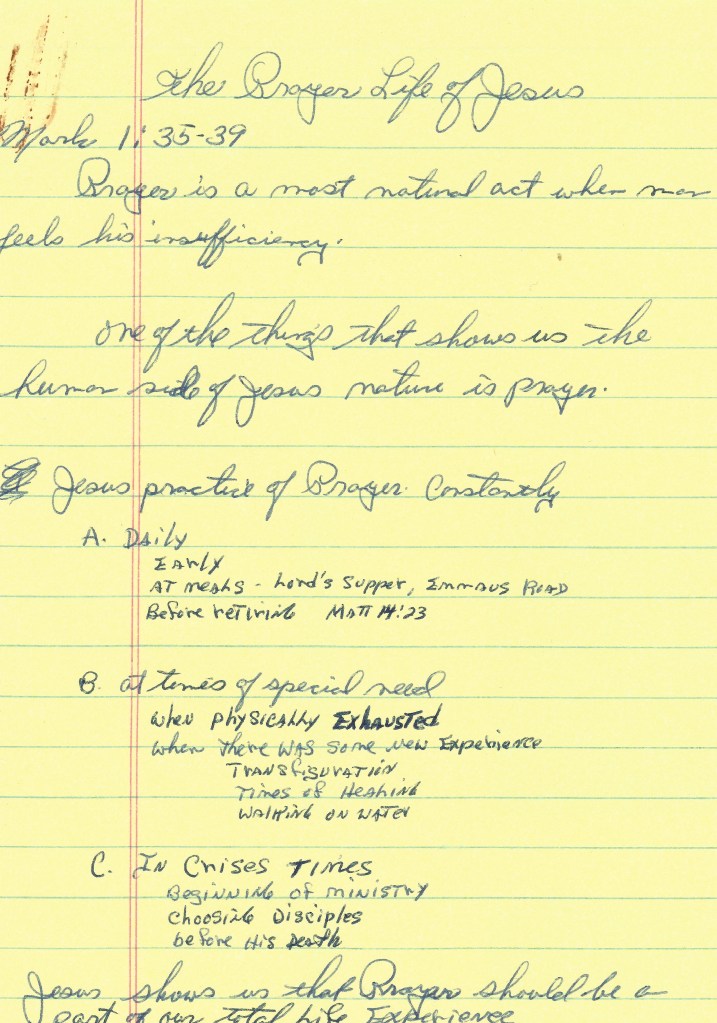 The Prayer Life of Jesus
Mark 1:35-39
Prayer is a most natural act when man
feels his insufficiency.
One of the things that shows us the
human side of Jesus nature is prayer.
Jesus practice of Prayer. Constantly
A. Daily
Early
At meals - Lord's Supper, Emmaus Road
Before retiring Matt 14:23
B. at times of special need
when physically Exhausted
when there was some new Experience
Transfiguration
Times of Healing
Walking on water
C. In Crises Times
Beginning of ministry
Choosing Disciples
before His Death
Jesus shows us that Prayer should be a
part of our total Life Experience